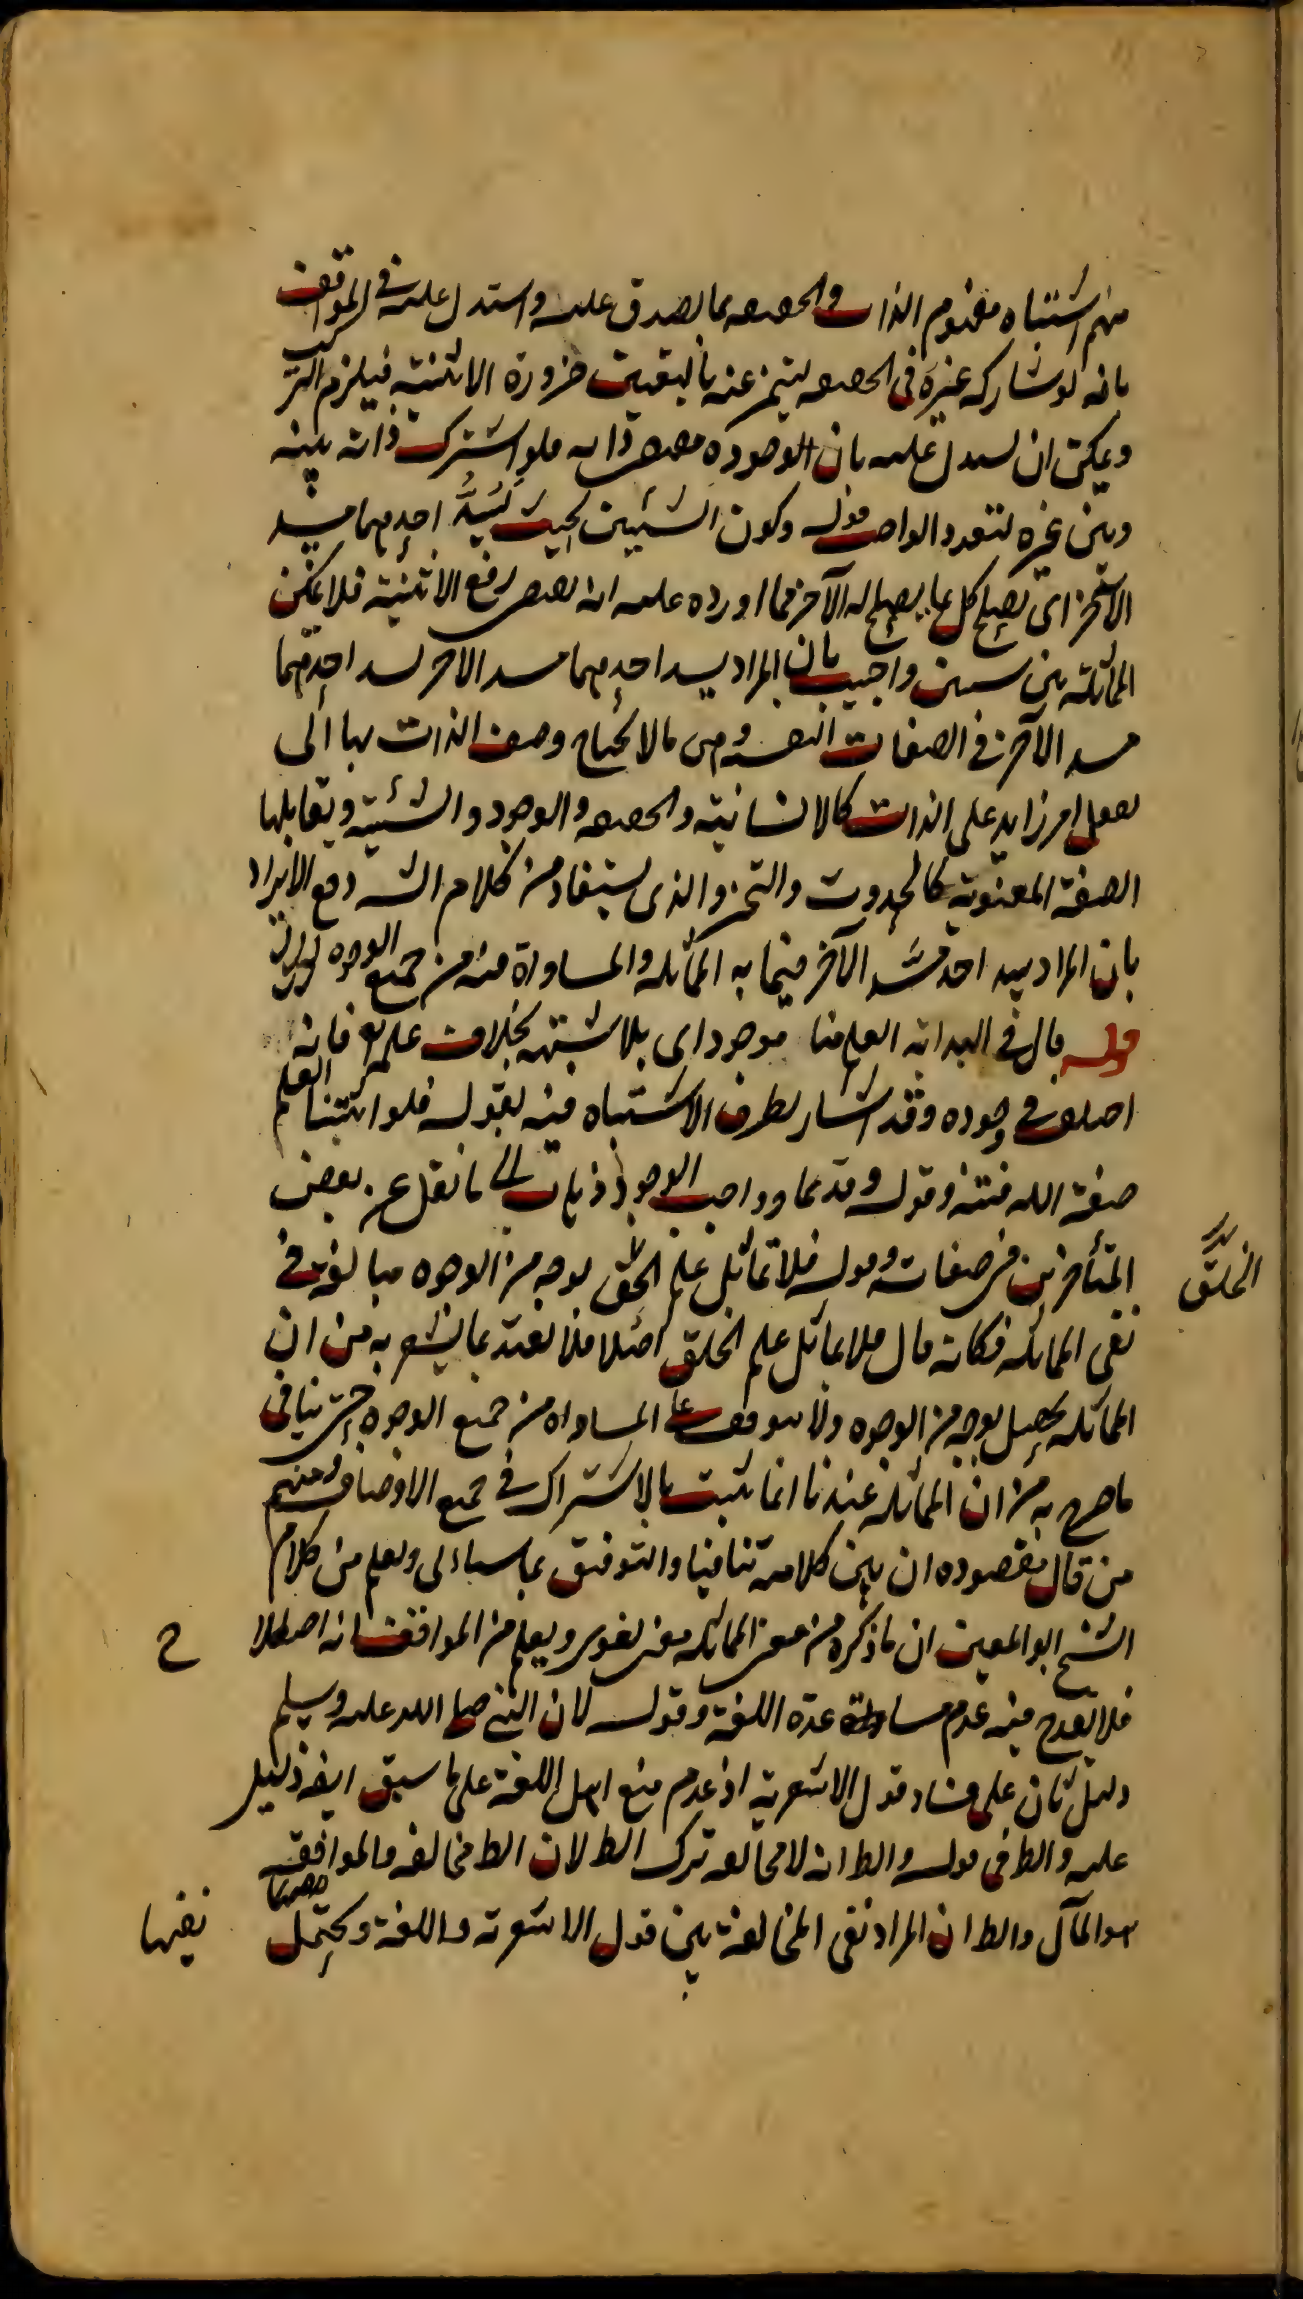 منهم اشتباه مفهوم الذات والحقيقه بما يصدق عليه واستدل عليه في المواقف
بانه لو شاركه غيره في الحقيقه ليتميز عنه بالتعين ضرورة الاثنينية فيلزم التركب
ويمكن ان يستدل عليه بان الوجوده مقتضى ذاته فلو اشترك ذاته بينه
وبين غيره لتعدد الواجب قوله وكون الشيئين بحيث يسدّ احدهما مسد
الآخر اى يصلح كل لما يصلح له الآخر مما اورده عليه انه يقتضى رفع الاثنينية فلا يمكن
المماثلة بين شيئين واجيب بان المراد يسد احدهما مسد الآخر يسد احدهما
مسد الآخر في الصفات النفسيه وهى ما لا يحتاج وصف الذات بها الى
تعقل امر زايد على الذات كالانسانية والحقيقه والوجود والشيئية ويقابلها
الصفة المعنوية كالحدوث والتحيز والذى يستفاد من كلام الش دفع الايراد
بان المراد يسد احد مسد الآخر فيما به المماثله والمساواة منه من جميع الوجوه
قوله قال في البداية العلم منا موجود اى بلا شبهة بخلاف علمه تع فانه
اختلف في وجوده وقد اشار بطرف الاشتباه فيه بقوله فلو اثبتنا العلم
صفة الله فتنه وقوله وقديما وواجب الوجود ذهاب الى ما نقل عن بعض
المتأخرين في صفاته وقوله فلا تماثل علم الخلق بوجه من الوجوه مبالغة في
الخلق
نفى المماثله فكانه قال فلا يماثل علم الخلق اصلا فلا نعتد بما يشعر به من ان
المماثله يحصل بوجه من الوجوه ولا يتوقف على المساواه من جميع الوجوه حتى ينافى
ما صرح به من ان المماثله عندنا انما يثبت بالاشتراك في جميع الاوصاف ومنهم
من قال مقصوده ان بين كلاميه تنافيا والتوفيق بما سيأتى ويعلم من كلام
الشيخ ابو المعين ان ما ذكره من معنى المماثله معنى لغوى ويعلم من المواقف انه اصطلا
ح
فلا يقدح فيه عدم مساعدة اللغة وقوله لان النبي صلى الله عليه وسلم
دليل ثان على فساد قول الاشعرية اذ عدم منع اهل اللغة على ما سبق ايضا دليل
عليه والظ في قوله والظ انه لا مخالفه ترك الظ لان الظ مخالفه والموافقه
هو المآل والظ ان المراد نفى المخالفة بين قول الاشعرية واللغة ويحتمل
نفيها